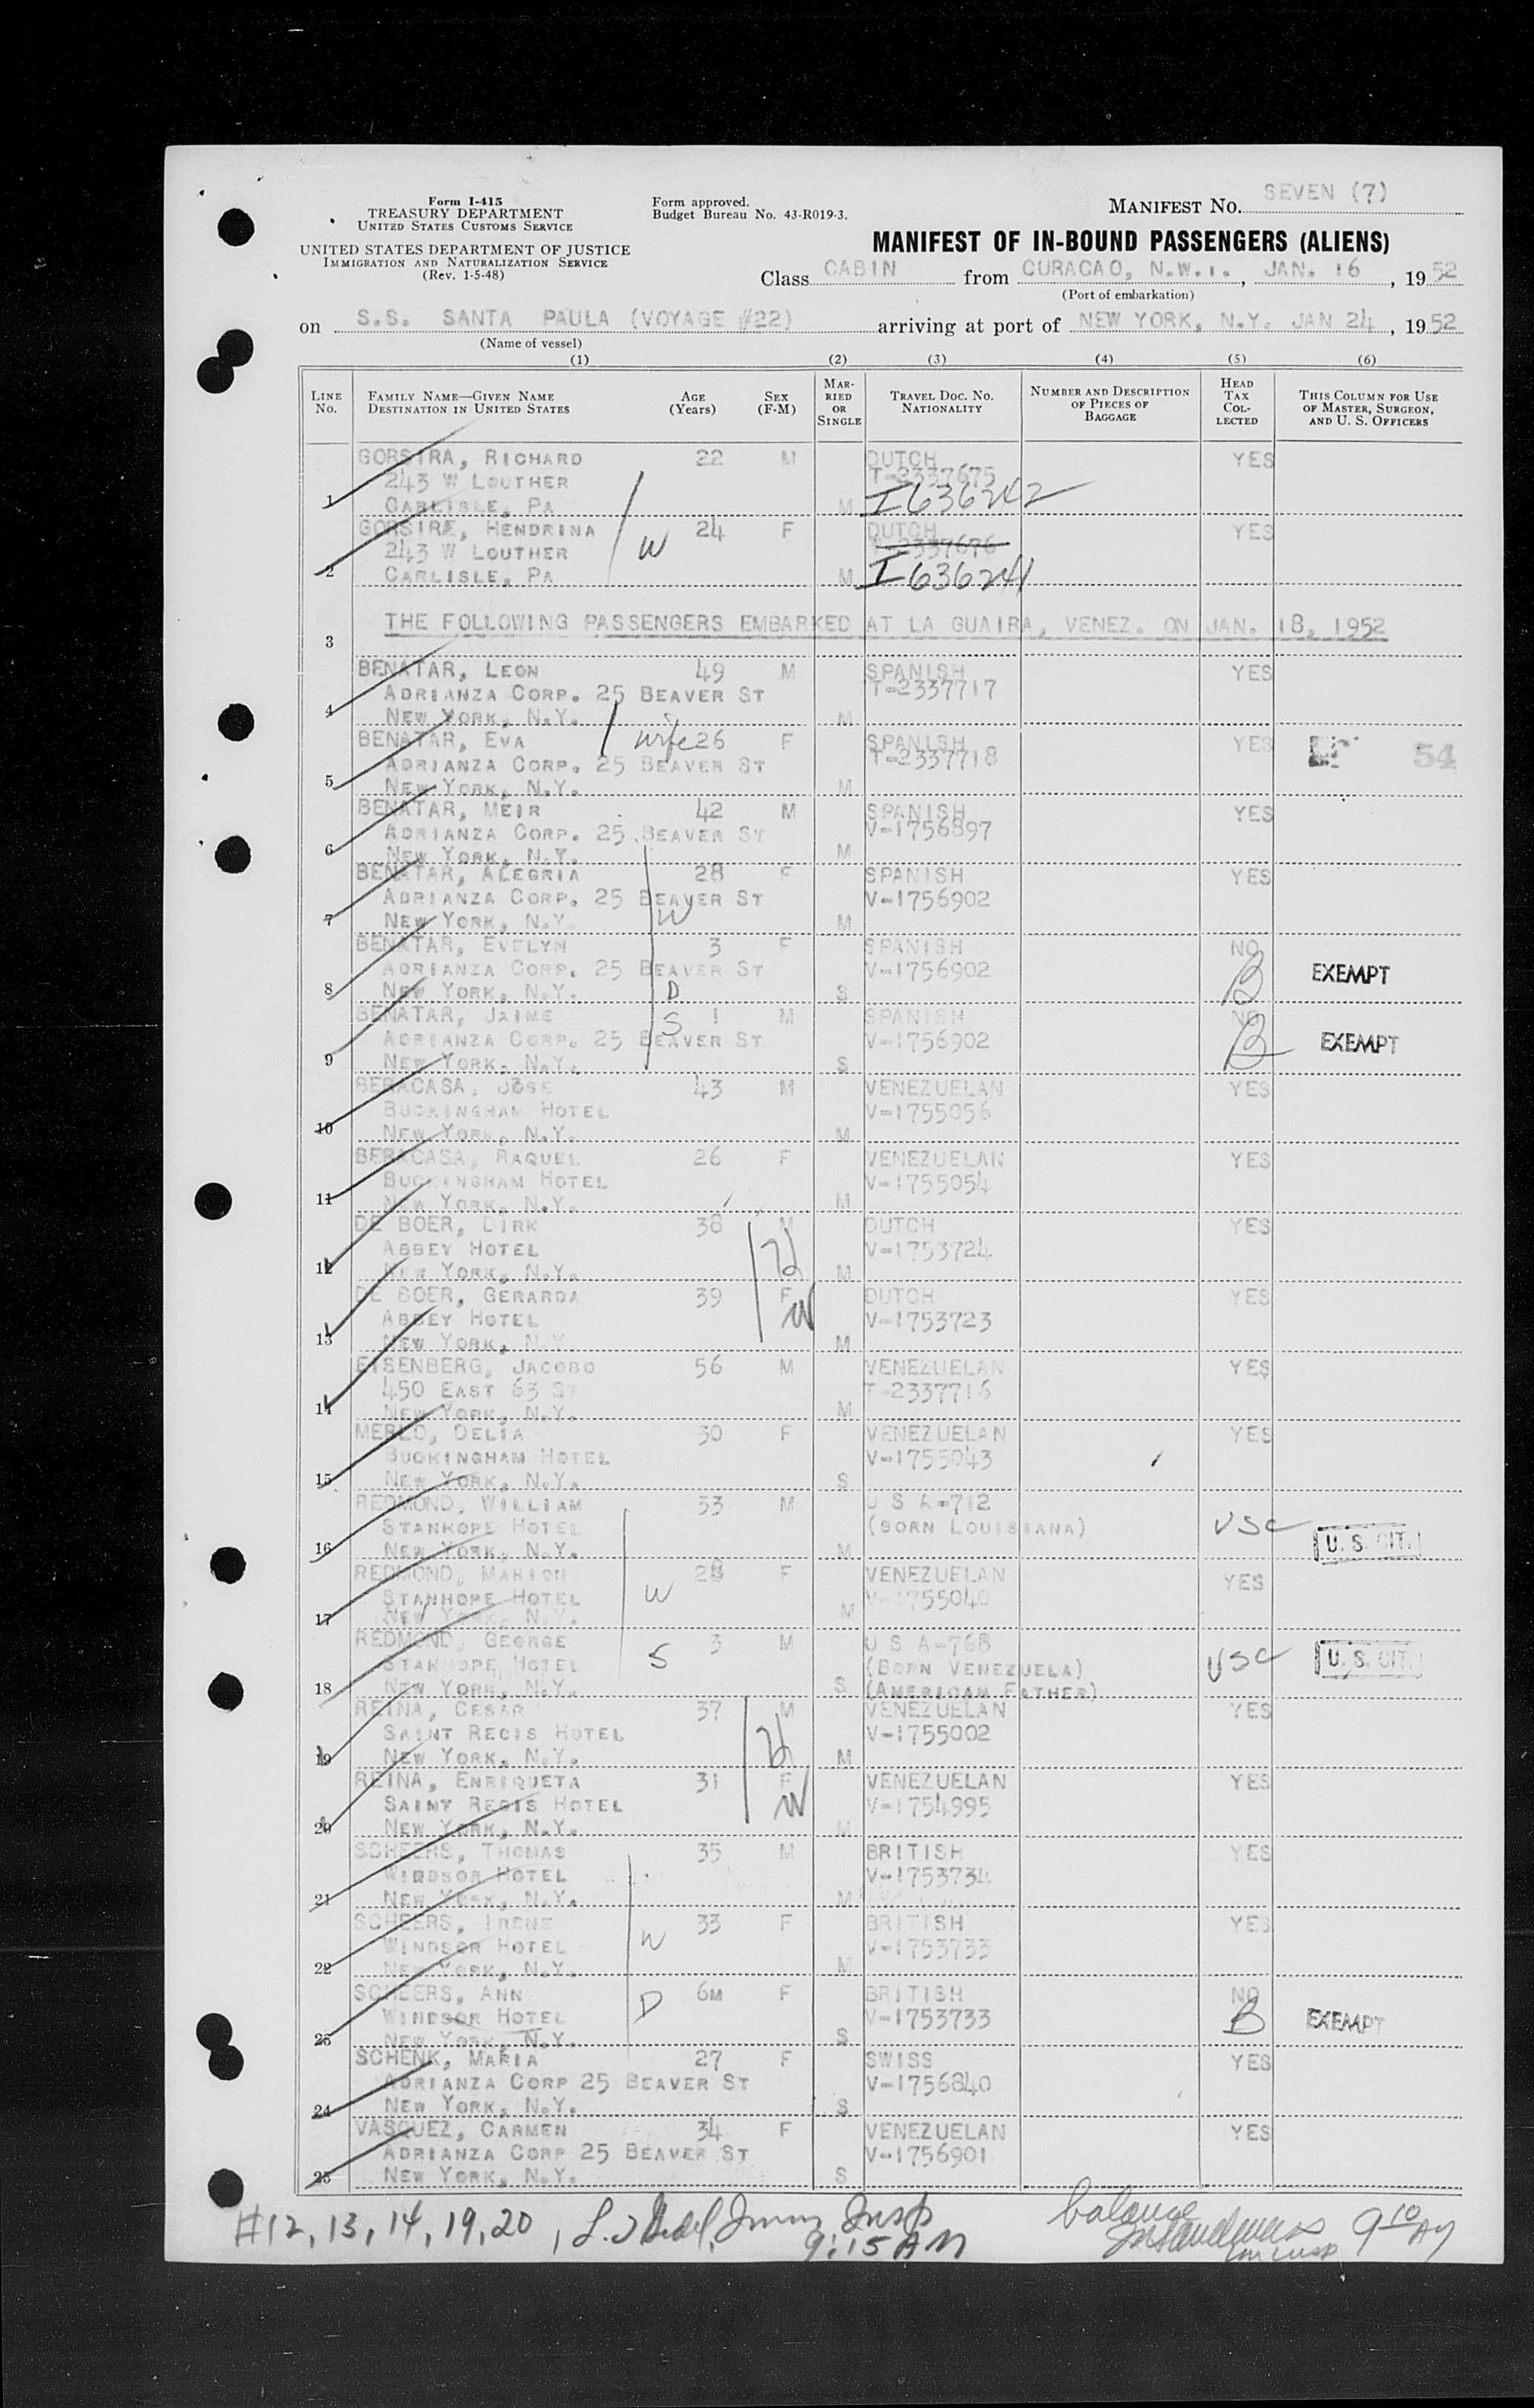 Form I-415
TREASURY DEPARTMENT
UNITED STATES CUSTOMS SERVICE
UNITED STATES DEPARTMENT OF JUSTICE
IMMIGRATION AND NATURALIZATION SERVICE
(Rev. 1-5-48)
Form approved.
Budget Bureau No. 43-R019-3.
MANIFEST NO. SEVEN (7)
MANIFEST OF IN-BOUND PASSENGERS (ALIENS)
Class CABIN from CURACAO, N.W.I., JAN. 16, 1952
(Port of embarkation)
on S.S. SANTA PAULA (VOYAGE #22) arriving at port of NEW YORK, N.Y. JAN 24, 1952
(Name of vessel)
(1) (2) (3) (4) (5) (6)
LINE NO. FAMILY NAME—GIVEN NAME DESTINATION IN UNITED STATES AGE (Years) SEX (F-M) MARRIED OR SINGLE TRAVEL DOC. NO. NATIONALITY NUMBER AND DESCRIPTION OF PIECES OF BAGGAGE HEAD TAX COLLECTED THIS COLUMN FOR USE OF MASTER, SURGEON, AND U. S. OFFICERS
GORSIRA, RICHARD 22 M DUTCH YES
243 W LOUTHER T-2337675
1 CARLISLE, PA M I636242
GORSIRA, HENDRINA 24 F DUTCH YES
243 W LOUTHER W 2337676
2 CARLISLE, PA M I636241
3 THE FOLLOWING PASSENGERS EMBARKED AT LA GUAIRA, VENEZ. ON JAN. 18, 1952
BENATAR, LEON 49 M SPANISH YES
ADRIANZA CORP. 25 BEAVER ST T-2337717
4 NEW YORK, N.Y. M
BENATAR, EVA wife 26 F SPANISH YES
ADRIANZA CORP. 25 BEAVER ST T-2337718 54
5 NEW YORK, N.Y. M
BENATAR, MEIR 42 M SPANISH YES
ADRIANZA CORP. 25 BEAVER ST V-1756897
6 NEW YORK, N.Y. M
BENATAR, ALEGRIA 28 F SPANISH YES
ADRIANZA CORP. 25 BEAVER ST V-1756902
7 NEW YORK, N.Y. W M
BENATAR, EVELYN 3 F SPANISH NO
ADRIANZA CORP. 25 BEAVER ST V-1756902 B EXEMPT
8 NEW YORK, N.Y. D S
BENATAR, JAIME S 1 M SPANISH NO
ADRIANZA CORP. 25 BEAVER ST V-1756902 B EXEMPT
9 NEW YORK, N.Y. S
BERACASA, JOSE 43 M VENEZUELAN YES
BUCKINGHAM HOTEL V-1755056
10 NEW YORK, N.Y. M
BERACASA, RAQUEL 26 F VENEZUELAN YES
BUCKINGHAM HOTEL V-1755054
11 NEW YORK, N.Y. M
DE BOER, DIRK 38 M DUTCH YES
ABBEY HOTEL H V-1753724
12 NEW YORK, N.Y. M
DE BOER, GERARDA 39 F DUTCH YES
ABBEY HOTEL W V-1753723
13 NEW YORK, N.Y. M
EISENBERG, JACOBO 56 M VENEZUELAN YES
450 EAST 63 ST T-2337716
14 NEW YORK, N.Y. M
MERLO, DELIA 30 F VENEZUELAN YES
BUCKINGHAM HOTEL V-1755043
15 NEW YORK, N.Y. S
REDMOND, WILLIAM 33 M U S A-712
STANHOPE HOTEL (BORN LOUISIANA) USC
16 NEW YORK, N.Y. M U. S. CIT.
REDMOND, MARION 28 F VENEZUELAN YES
STANHOPE HOTEL W V-1755040
17 NEW YORK, N.Y. M
REDMOND, GEORGE 3 M U S A-768
STANHOPE HOTEL S (BORN VENEZUELA) USC U. S. CIT.
18 NEW YORK, N.Y. S (AMERICAN FATHER)
REINA, CESAR 37 M VENEZUELAN YES
SAINT REGIS HOTEL H V-1755002
19 NEW YORK, N.Y. M
REINA, ENRIQUETA 31 F VENEZUELAN YES
SAINT REGIS HOTEL W V-1754995
20 NEW YORK, N.Y. M
SCHEERS, THOMAS 35 M BRITISH YES
WINDSOR HOTEL V-1753734
21 NEW YORK, N.Y. M
SCHEERS, IRENE 33 F BRITISH YES
WINDSOR HOTEL W V-1753733
22 NEW YORK, N.Y. M
SCHEERS, ANN 6M F BRITISH NO
WINDSOR HOTEL D V-1753733 B EXEMPT
23 NEW YORK, N.Y. S
SCHENK, MARIA 27 F SWISS YES
ADRIANZA CORP 25 BEAVER ST V-1756840
24 NEW YORK, N.Y. S
VASQUEZ, CARMEN 34 F VENEZUELAN YES
ADRIANZA CORP 25 BEAVER ST V-1756901
25 NEW YORK, N.Y. S
#12, 13, 14, 19, 20, Immn Insp balance 9 10 AM
9:15 AM